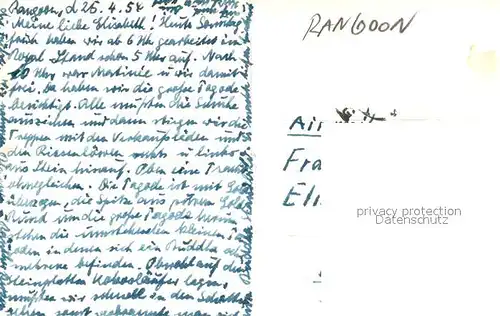 Rangoon, d 25. 4. 54
Meine liebe Elisabeth! Heute Sonntag
früh haben wir ab 6 Uhr gearbeitet im
Royal Stand schon 5 Uhr auf. Nach
10 Uhr war Martinie u wir damit
frei. Da haben wir die große Pagode
besichtigt. Alle mußten die Schuhe
ausziehen und dann stiegen wir die
Treppen mit den Verkaufsläden und
den Riesenlöwen rechts u links
aus Stein hinauf. Oben eine Pracht
ohnegleichen. Die Pagode ist mit Gold
überzogen, die Spitze aus purem Gold
Rund um die große Pagode herum
stehen die umstehenden kleinen Pa
goden in denen sich ein Buddha oder
mehrere befinden. Obwohl auf den
Steinplatten Kokosläufer lagen,
mußten wir schnell in den Schatten
gehen sonst
RANGOON
Air
Fra
Eli
privacy protection
Datenschutz